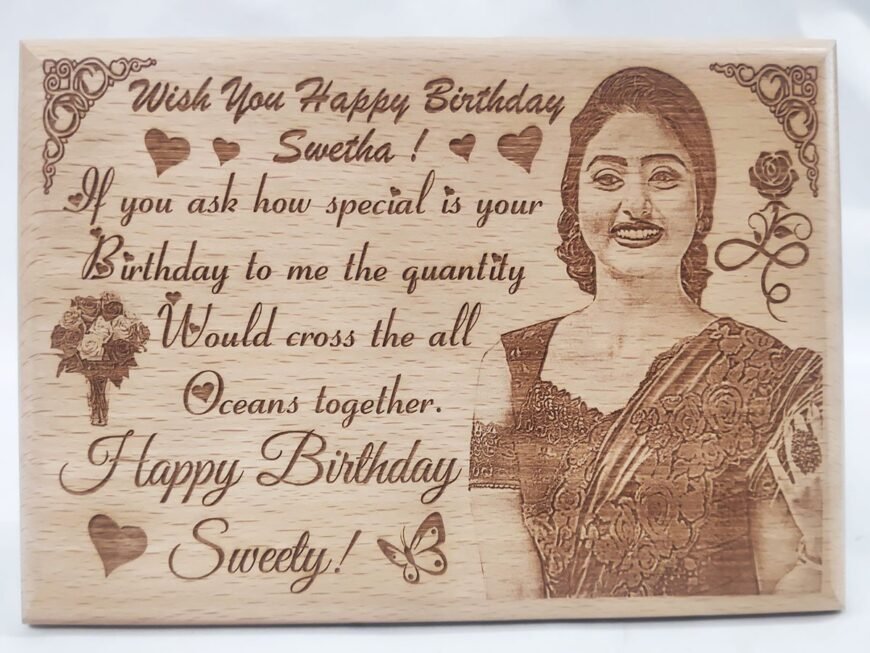 Wish You Happy Birthday
Swetha !
If you ask how special is your
Birthday to me the quantity
Would cross the all
Oceans together.
Happy Birthday
Sweety!